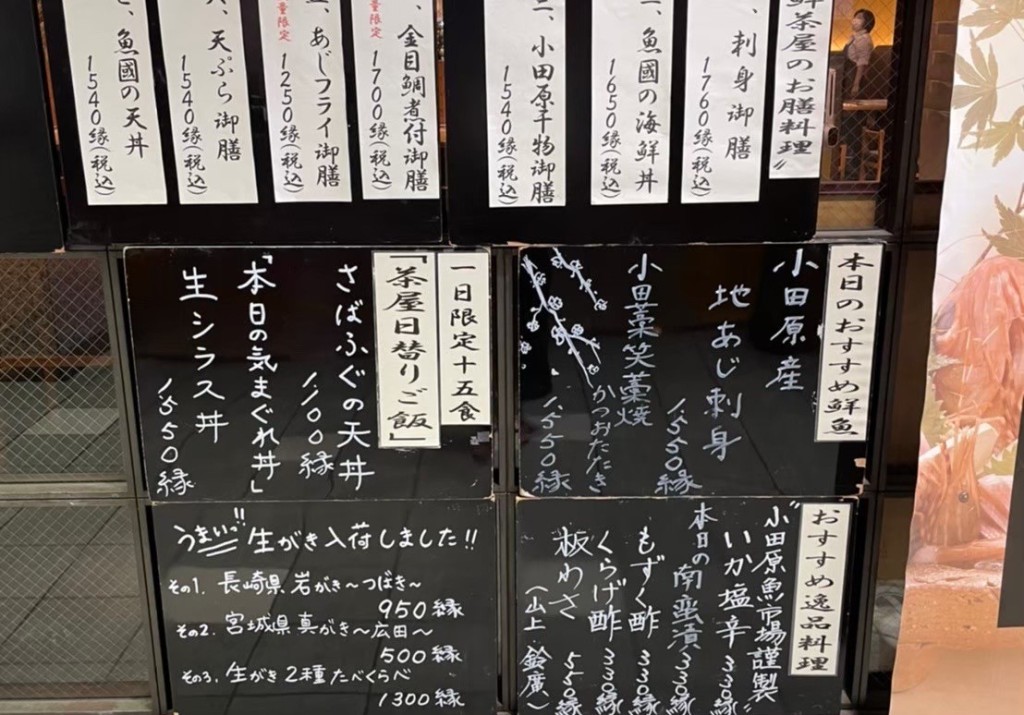 鮮茶屋のお膳料理〟
、刺身御膳
1760縁(税込)
二、魚國の海鮮丼
1650縁(税込)
三、小田原干物御膳
1540縁(税込)
、金目鯛煮付御膳
1700縁(税込)
量限定
、あじフライ御膳
1250縁(税込)
量限定
、天ぷら御膳
1540縁(税込)
、魚國の天丼
1540縁(税込)
本日のおすすめ鮮魚
小田原産
地あじ刺身
1,550縁
小田藁笑藁焼
かつおたたき
1,550縁
一日限定十五食
「茶屋日替りご飯」
さばふぐの天丼
1,100縁
「本日の気まぐれ丼」
生シラス丼
1,550縁
おすすめ逸品料理
〝小田原魚市場謹製〟
いか塩辛 330縁
本日の南蛮漬 330縁
もずく酢 330縁
くらげ酢 330縁
板わさ 550縁
(山上 鈴廣)
うまいっ!! 生がき入荷しました!!
その1. 長崎県 岩がき〜つばき〜
950縁
その2. 宮城県 真がき〜広田〜
500縁
その3. 生がき2種たべくらべ
1300縁